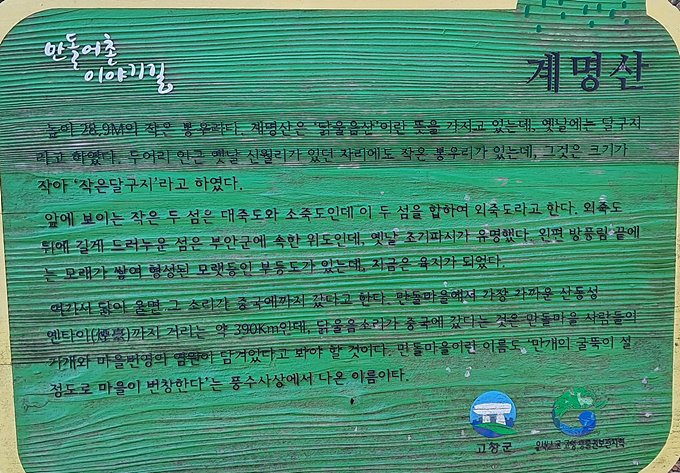 만돌어촌
이야기길
계명산
높이 28.9M의 작은 봉우리다. 계명산은 '닭울음산'이란 뜻을 가지고 있는데, 옛날에는 달구지
라고 하였다. 두어리 안근 옛날 신월리가 있던 자리에도 작은 봉우리가 있는데, 그것은 크기가
작아 '작은달구지'라고 하였다.
앞에 보이는 작은 두 섬은 대죽도와 소죽도인데 이 두 섬을 합하여 외죽도라고 한다. 외죽도
뒤에 길게 드러누운 섬은 부안군에 속한 위도인데, 옛날 조기파시가 유명했다. 왼편 방풍림 끝에
는 모래가 쌓여 형성된 모랫등인 부등도가 있는데, 지금은 육지가 되었다.
여기서 닭이 울면 그 소리가 중국에까지 갔다고 한다. 만돌마을에서 가장 가까운 산동성
옌타이(煙臺)까지 거리는 약 390Km인데, 닭울음소리가 중국에 갔다는 것은 만돌마을 사람들의
기개와 마을번영의 염원이 담겨있다고 봐야 할 것이다. 만돌마을이란 이름도 '만개의 굴뚝이 설
정도로 마을이 번창한다'는 풍수사상에서 나온 이름이다.
고창군
고창 생물권보전지역